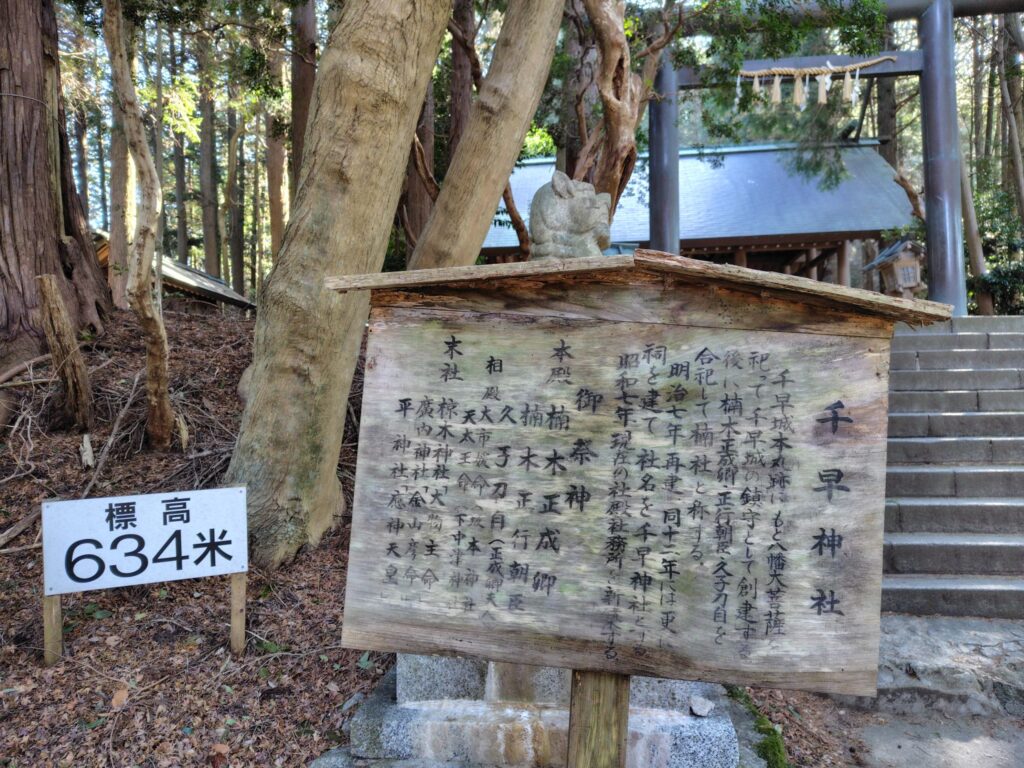 千早神社
千早城本丸跡にもと八幡大菩薩を
祀って千早城の鎮守として創建する
後に楠大正成卿正行朝臣久子刀自を
合祀して楠社と称する。
明治七年再建同十二年には更に
祠を建て社名を千早神社とする
昭和七年現在の社殿社務所を新築する
御祭神
本殿 楠木正成卿
楠木正行朝臣
久子刀自(正成卿夫人)
相殿
天太王命
末社
椋木神社(大物主命)
廣内神社(金山彦命)
平神社(應神天皇)
標高
634米